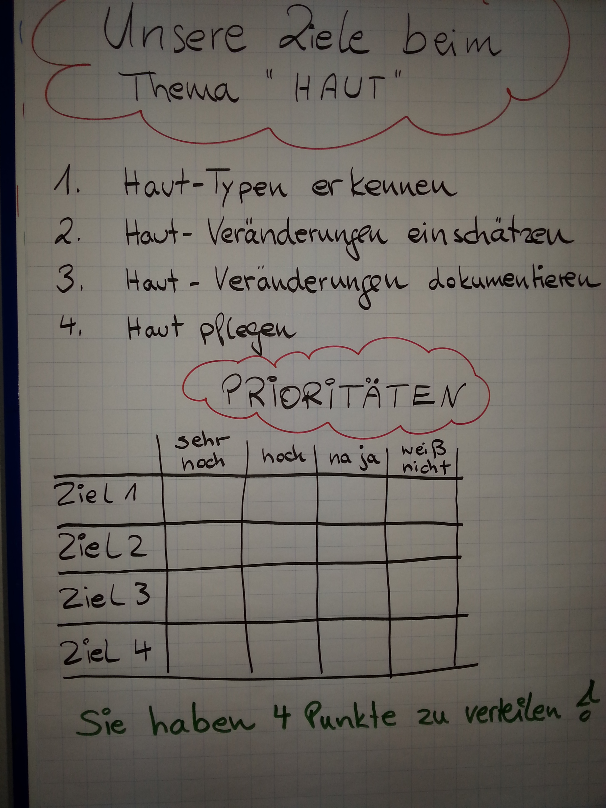 Unsere Ziele beim
Thema "HAUT"
1. Haut-Typen erkennen
2. Haut-Veränderungen einschätzen
3. Haut-Veränderungen dokumentieren
4. Haut pflegen
PRIORITÄTEN
sehr hoch hoch na ja weiß nicht
Ziel 1
Ziel 2
Ziel 3
Ziel 4
Sie haben 4 Punkte zu verteilen!